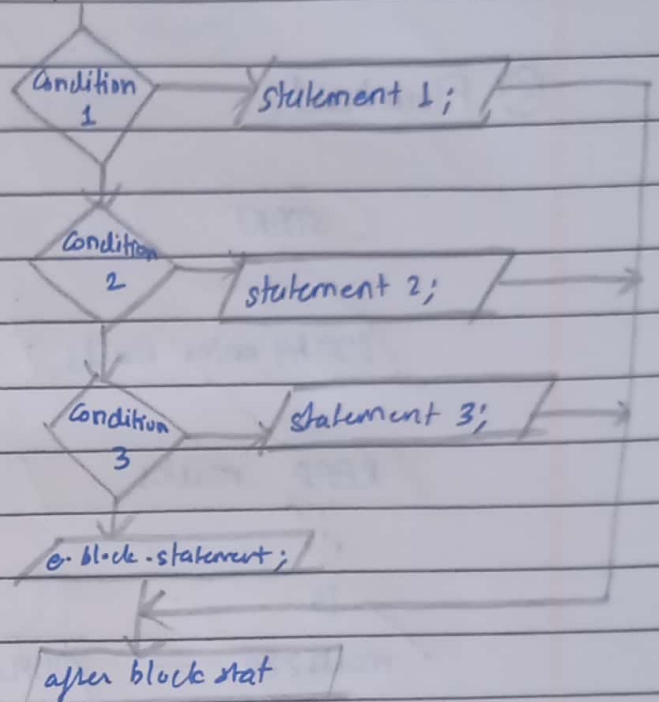 Condition
1
statement 1;
Condition
2
statement 2;
Condition
3
statement 3;
e. block. statement;
after block stat